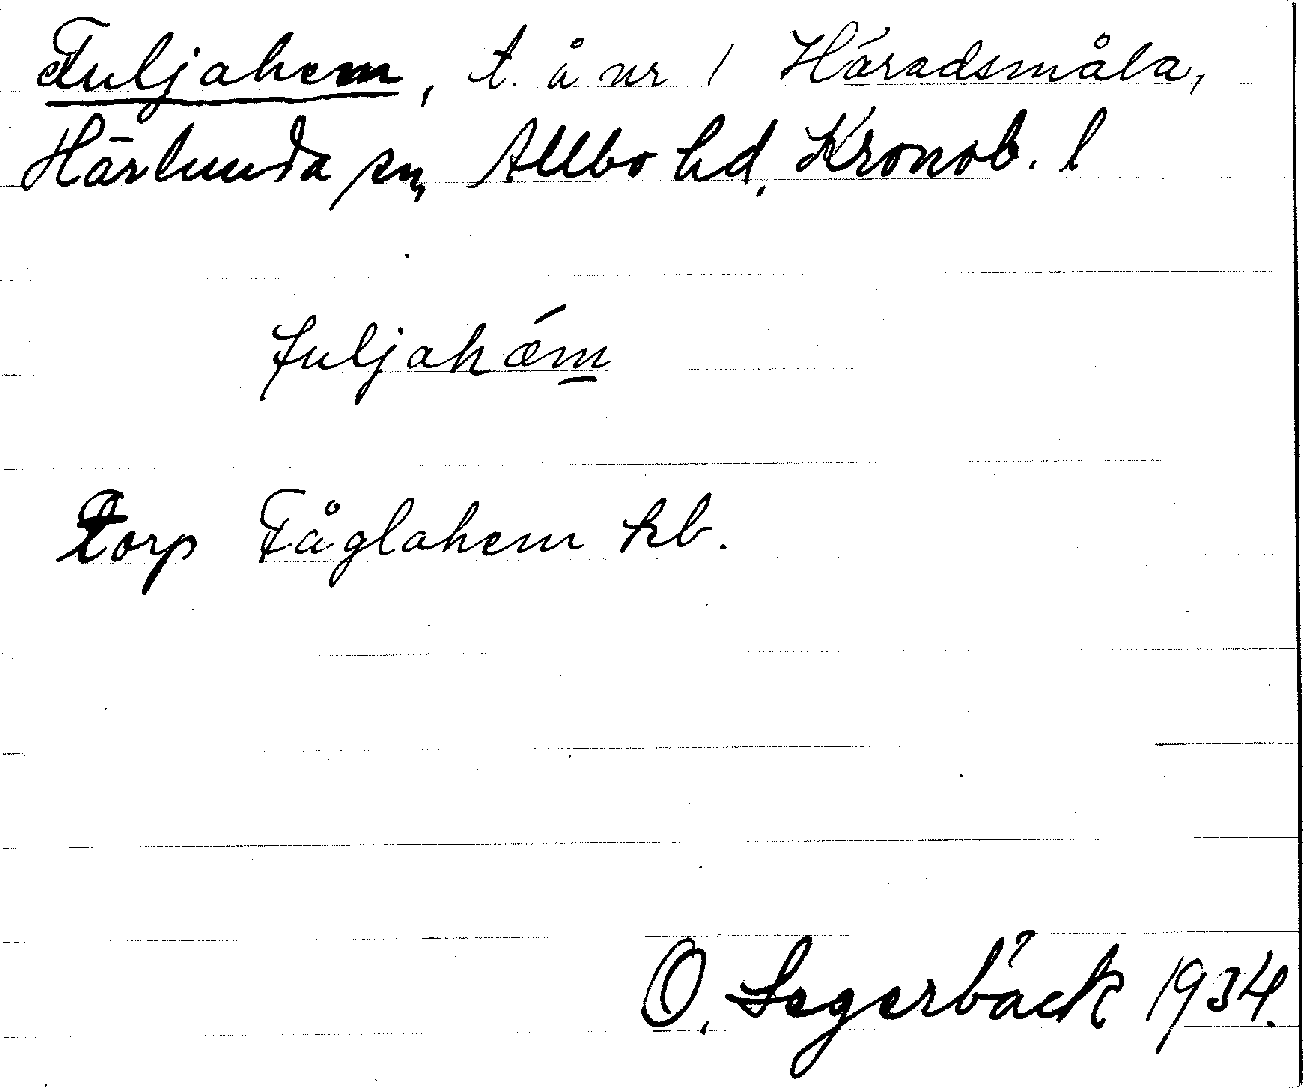 Fuljahem, t. å nr 1 Häradsmåla,
Härlunda sn, Allbo hd, Kronob. l
fuljahǽm
Torp Fåglahem kb.
O. Segerbäck 1934.